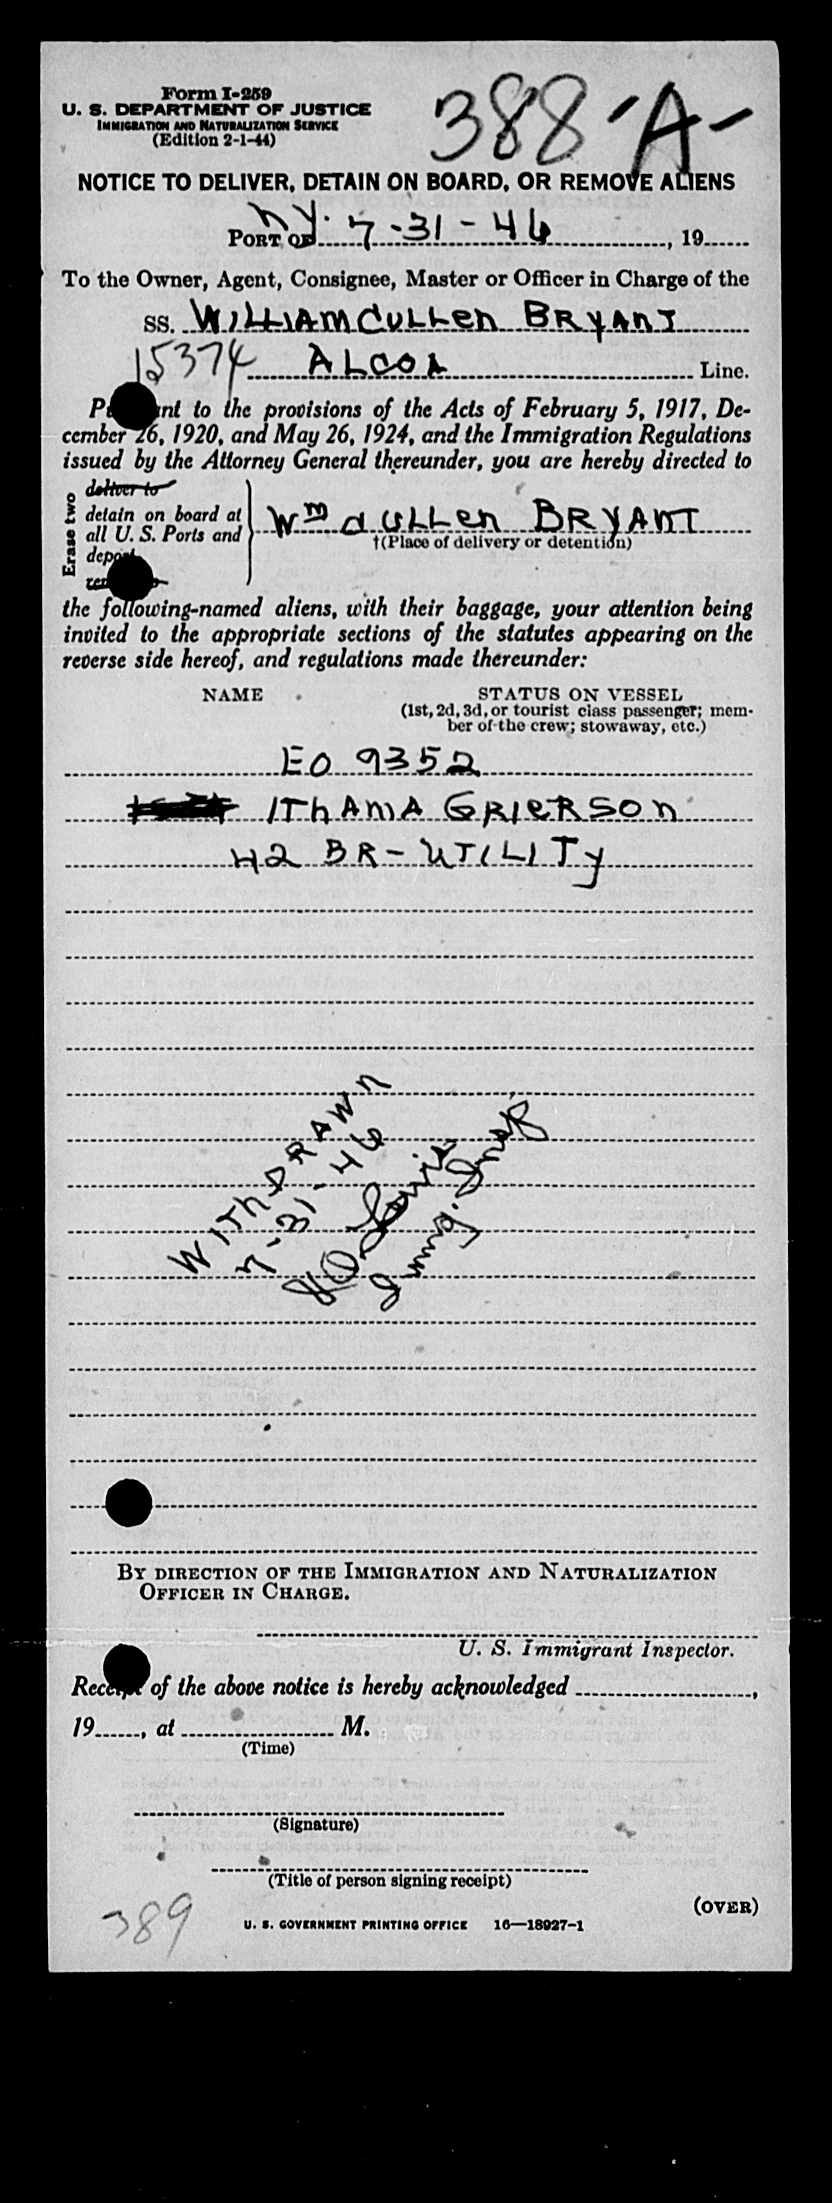 Form I-259
U. S. DEPARTMENT OF JUSTICE
IMMIGRATION AND NATURALIZATION SERVICE
(Edition 2-1-44)
388-A-
NOTICE TO DELIVER, DETAIN ON BOARD, OR REMOVE ALIENS
PORT OF NY. 7-31-46, 19
To the Owner, Agent, Consignee, Master or Officer in Charge of the
SS. WILLIAM CULLEN BRYANT
15374 ALCOA Line.
Pursuant to the provisions of the Acts of February 5, 1917, De-
cember 26, 1920, and May 26, 1924, and the Immigration Regulations
issued by the Attorney General thereunder, you are hereby directed to
Erase two
deliver to
detain on board at
all U. S. Ports and
deport
Wm CULLEN BRYANT
†(Place of delivery or detention)
the following-named aliens, with their baggage, your attention being
invited to the appropriate sections of the statutes appearing on the
reverse side hereof, and regulations made thereunder:
NAME
STATUS ON VESSEL
(1st, 2d, 3d, or tourist class passenger; mem-
ber of the crew; stowaway, etc.)
EO 9352
ITHAMA GRIERSON
42 BR-UTILITY
WITHDRAWN
7-31-46
Immig. Insp
BY DIRECTION OF THE IMMIGRATION AND NATURALIZATION
OFFICER IN CHARGE.
U. S. Immigrant Inspector.
Receipt of the above notice is hereby acknowledged ,
19 , at M.
(Time)
(Signature)
(Title of person signing receipt)
(OVER)
389
U. S. GOVERNMENT PRINTING OFFICE 16—18927-1